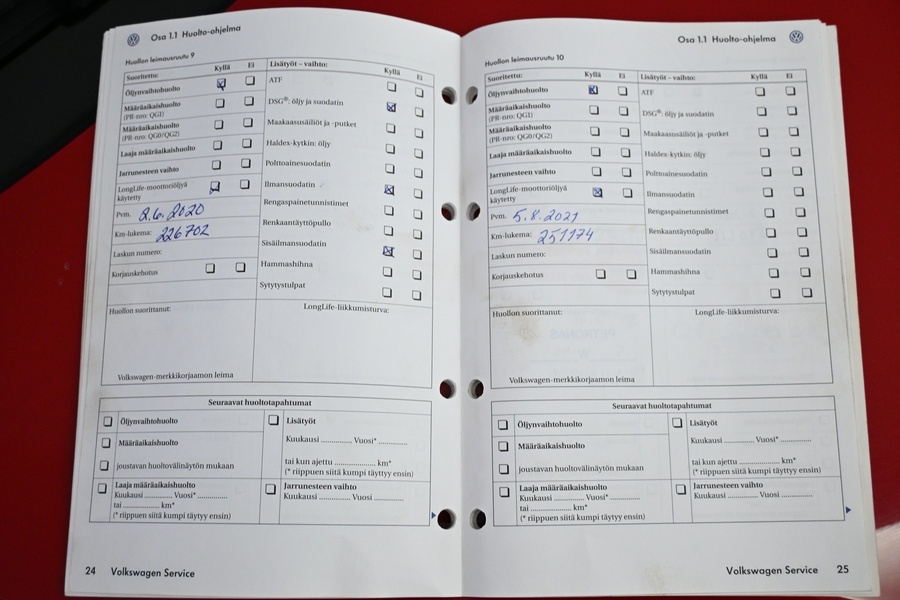 Osa 1.1 Huolto-ohjelma
Huollon leimausruutu 9
Suoritettu: Kyllä Ei
Öljynvaihtohuolto
Määräaikaishuolto
(PR-nro: QG1)
Määräaikaishuolto
(PR-nro: QG0/QG2)
Laaja määräaikaishuolto
Jarrunesteen vaihto
LongLife-moottoriöljyä
käytetty
Pvm. 2.6.2020
Km-lukema: 226702
Laskun numero:
Korjauskehotus
Lisätyöt – vaihto: Kyllä Ei
ATF
DSG®: öljy ja suodatin
Maakaasusäiliöt ja -putket
Haldex-kytkin: öljy
Polttoainesuodatin
Ilmansuodatin
Rengaspainetunnistimet
Renkaantäyttöpullo
Sisäilmansuodatin
Hammashihna
Sytytystulpat
Huollon suorittanut:
LongLife-liikkumisturva:
Volkswagen-merkkikorjaamon leima
Seuraavat huoltotapahtumat
Öljynvaihtohuolto
Määräaikaishuolto
joustavan huoltovälinäytön mukaan
Laaja määräaikaishuolto
Kuukausi ............ Vuosi* ..............
tai ................ km*
(* riippuen siitä kumpi täytyy ensin)
Lisätyöt
Kuukausi .............. Vuosi* .............
tai kun ajettu .................. km*
(* riippuen siitä kumpi täyttyy ensin)
Jarrunesteen vaihto
Kuukausi .............. Vuosi .............
24 Volkswagen Service
Osa 1.1 Huolto-ohjelma
Huollon leimausruutu 10
Suoritettu: Kyllä Ei
Öljynvaihtohuolto
Määräaikaishuolto
(PR-nro: QG1)
Määräaikaishuolto
(PR-nro: QG0/QG2)
Laaja määräaikaishuolto
Jarrunesteen vaihto
LongLife-moottoriöljyä
käytetty
Pvm. 5.8.2021
Km-lukema: 251174
Laskun numero:
Korjauskehotus
Lisätyöt – vaihto: Kyllä Ei
ATF
DSG®: öljy ja suodatin
Maakaasusäiliöt ja -putket
Haldex-kytkin: öljy
Polttoainesuodatin
Ilmansuodatin
Rengaspainetunnistimet
Renkaantäyttöpullo
Sisäilmansuodatin
Hammashihna
Sytytystulpat
Huollon suorittanut:
LongLife-liikkumisturva:
Volkswagen-merkkikorjaamon leima
Seuraavat huoltotapahtumat
Öljynvaihtohuolto
Määräaikaishuolto
joustavan huoltovälinäytön mukaan
Laaja määräaikaishuolto
Kuukausi ............ Vuosi* ..............
tai ................ km*
(* riippuen siitä kumpi täytyy ensin)
Lisätyöt
Kuukausi .............. Vuosi* .............
tai kun ajettu .................. km*
(* riippuen siitä kumpi täyttyy ensin)
Jarrunesteen vaihto
Kuukausi .............. Vuosi .............
Volkswagen Service 25